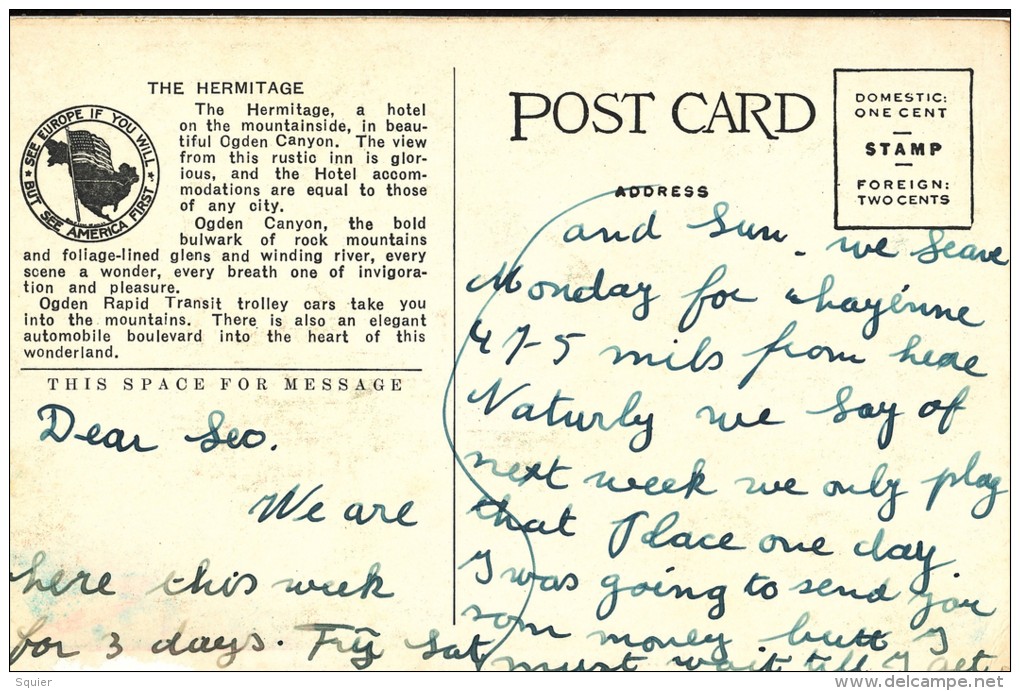 THE HERMITAGE
The Hermitage, a hotel
on the mountainside, in beau-
tiful Ogden Canyon. The view
from this rustic inn is glor-
ious, and the Hotel accom-
modations are equal to those
of any city.
Ogden Canyon, the bold
bulwark of rock mountains
and foliage-lined glens and winding river, every
scene a wonder, every breath one of invigora-
tion and pleasure.
Ogden Rapid Transit trolley cars take you
into the mountains. There is also an elegant
automobile boulevard into the heart of this
wonderland.
SEE EUROPE IF YOU WILL
BUT SEE AMERICA FIRST
THIS SPACE FOR MESSAGE
Dear Geo.
We are
here this week
for 3 days. Fry Sat
POST CARD
ADDRESS
DOMESTIC:
ONE CENT
STAMP
FOREIGN:
TWO CENTS
and Sun. we leave
Monday for chayenne
475 mils from here
Naturly we lay of
next week we only play
that Place one day.
I was going to send you
som money butt I
must wait till I get
Squier
delcampe.net